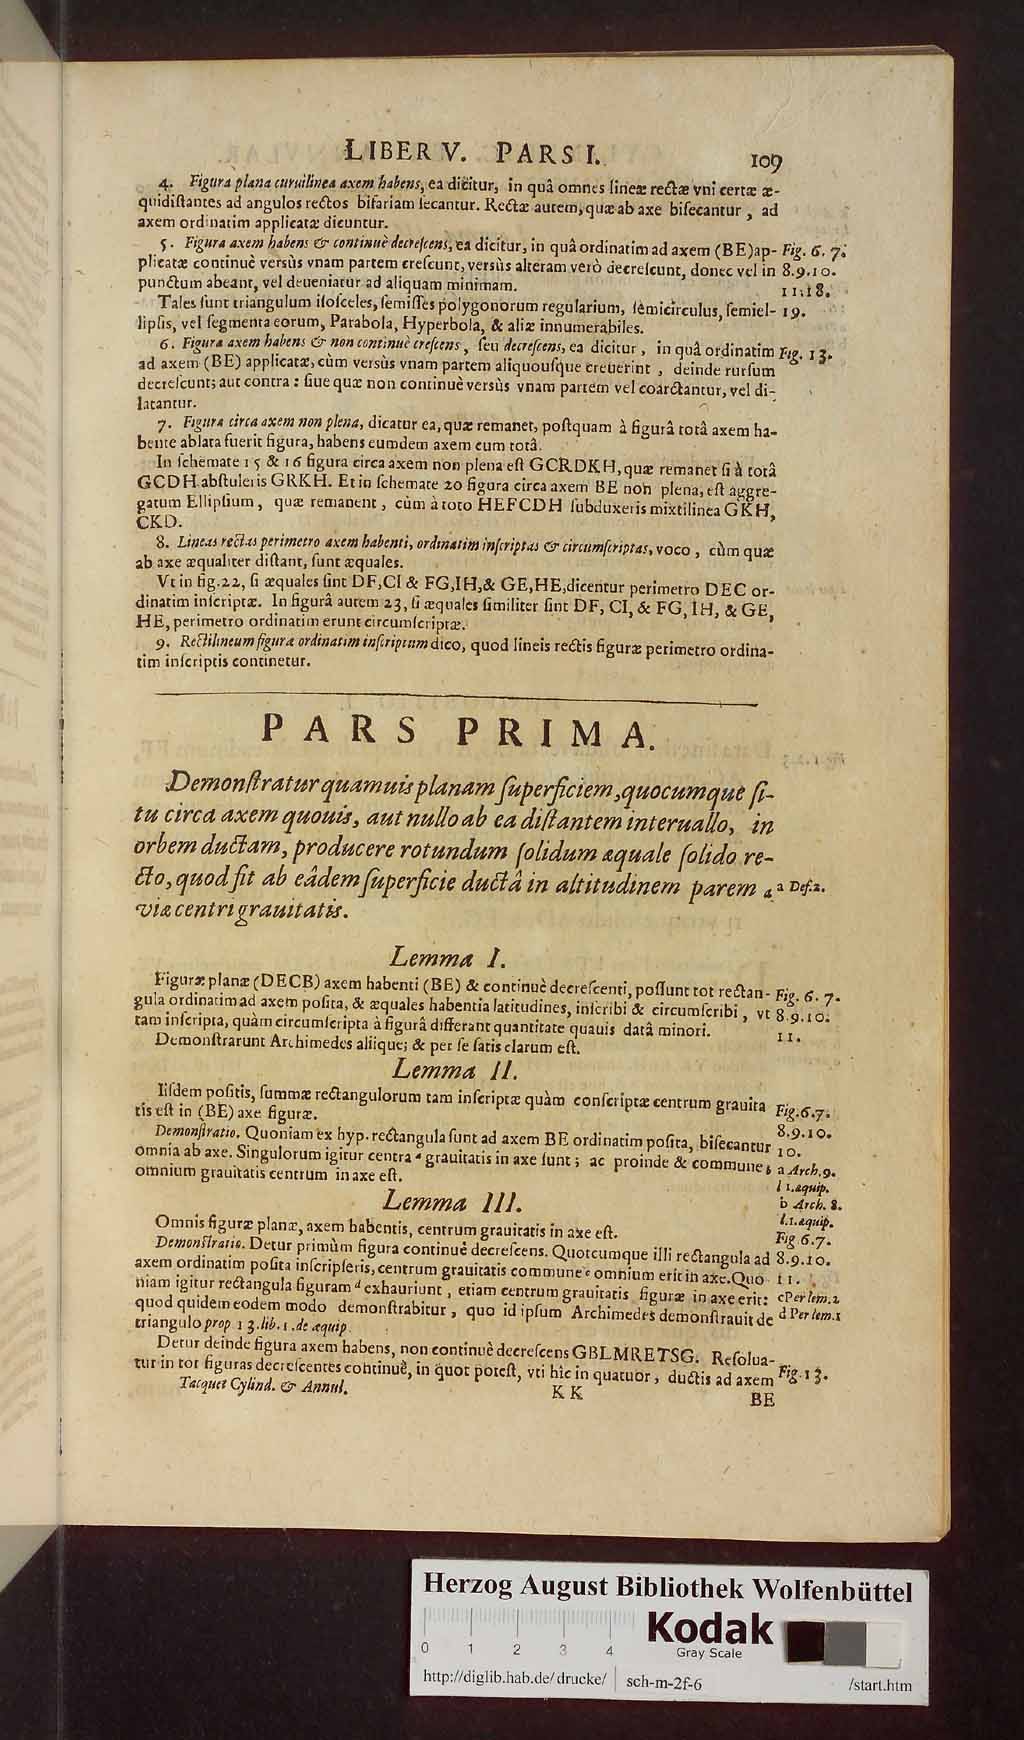 LIBER V. PARS I. 109
4. Figura plana curuilinea axem habens, ea dicitur, in quâ omnes lineæ rectæ vni certæ æ-
quidiſtantes ad angulos rectos bifariam ſecantur. Rectæ autem, quæ ab axe biſecantur, ad
axem ordinatim applicatæ dicuntur.
5. Figura axem habens & continuè decreſcens, ea dicitur, in quâ ordinatim ad axem (BE) ap- Fig. 6. 7.
plicatæ continuè versùs vnam partem creſcunt, versùs alteram verò decreſcunt, donec vel in 8.9.10.
punctum abeant, vel deueniatur ad aliquam minimam. 11.18.
Tales ſunt triangulum iſoſceles, ſemiſſes polygonorum regularium, ſemicirculus, ſemiel- 19.
lipſis, vel ſegmenta eorum, Parabola, Hyperbola, & aliæ innumerabiles.
6. Figura axem habens & non continuè creſcens, ſeu decreſcens, ea dicitur, in quâ ordinatim Fig. 13.
ad axem (BE) applicatæ, cùm versùs vnam partem aliquouſque creuerint, deinde rurſum
decreſcunt; aut contra: ſiue quæ non continuè versùs vnam partem vel coarctantur, vel di-
latantur.
7. Figura circa axem non plena, dicatur ea, quæ remanet, poſtquam à figurâ totâ axem ha-
bente ablata fuerit figura, habens eumdem axem cum totâ.
In ſchemate 15 & 16 figura circa axem non plena eſt GCRDKH, quæ remanet ſi à totâ
GCDH abſtuleris GRKH. Et in ſchemate 20 figura circa axem BE non plena, eſt aggre-
gatum Ellipſium, quæ remanent, cùm à toto HEFCDH ſubduxeris mixtilinea GKH,
CKD.
8. Lineas rectas perimetro axem habenti, ordinatim inſcriptas & circumſcriptas, voco, cùm quæ
ab axe æqualiter diſtant, ſunt æquales.
Vt in fig. 22, ſi æquales ſint DF, CI & FG, IH, & GE, HE, dicentur perimetro DEC or-
dinatim inſcriptæ. In figurâ autem 23, ſi æquales ſimiliter ſint DF, CI, & FG, IH, & GE,
HE, perimetro ordinatim erunt circumſcriptæ.
9. Rectilineum figuræ ordinatim inſcriptum dico, quod lineis rectis figuræ perimetro ordina-
tim inſcriptis continetur.
PARS PRIMA.
Demonſtratur quamuis planam ſuperficiem, quocumque ſi-
tu circa axem quouis, aut nullo ab ea diſtantem interuallo, in
orbem ductam, producere rotundum ſolidum æquale ſolido re-
cto, quod fit ab eâdem ſuperficie ductâ in altitudinem parem a a Def. 2.
viæ centri grauitatis.
Lemma I.
Figuræ planæ (DECB) axem habenti (BE) & continuè decreſcenti, poſſunt tot rectan- Fig. 6. 7.
gula ordinatim ad axem poſita, & æquales habentia latitudines, inſcribi & circumſcribi, vt 8.9.10.
tam inſcripta, quàm circumſcripta à figurâ differant quantitate quauis datâ minori. 11.
Demonſtrarunt Archimedes aliique; & per ſe ſatis clarum eſt.
Lemma II.
Iiſdem poſitis, ſummæ rectangulorum tam inſcriptæ quàm conſcriptæ centrum grauita Fig. 6. 7.
tis eſt in (BE) axe figuræ. 8.9.10.
Demonſtratio. Quoniam ex hyp. rectangula ſunt ad axem BE ordinatim poſita, biſecantur 10.
omnia ab axe. Singulorum igitur centra a grauitatis in axe ſunt; ac proinde & commune b a Arch. 9.
omnium grauitatis centrum in axe eſt. l 1. æquip.
Lemma III. b Arch. 8.
l. 1. æquip.
Omnis figuræ planæ, axem habentis, centrum grauitatis in axe eſt. Fig 6. 7.
Demonſtratio. Detur primùm figura continuè decreſcens. Quotcumque illi rectangula ad 8.9.10.
axem ordinatim poſita inſcripſeris, centrum grauitatis commune c omnium erit in axe. Quo- 11.
niam igitur rectangula figuram d exhauriunt, etiam centrum grauitatis figuræ in axe erit: c Per lem. 2
quod quidem eodem modo demonſtrabitur, quo id ipſum Archimedes demonſtrauit de d Per lem. 1
triangulo prop. 13. lib. 1. de æquip.
Detur deinde figura axem habens, non continuè decreſcens GBLMRETSG. Reſolua-
tur in tot figuras decreſcentes continuè, in quot poteſt, vti hîc in quatuor, ductis ad axem Fig. 13.
Tacquet Cylind. & Annul. KK BE
Herzog August Bibliothek Wolfenbüttel
0 1 2 3 4
Kodak
Gray Scale
http://diglib.hab.de/drucke/ sch-m-2f-6 /start.htm